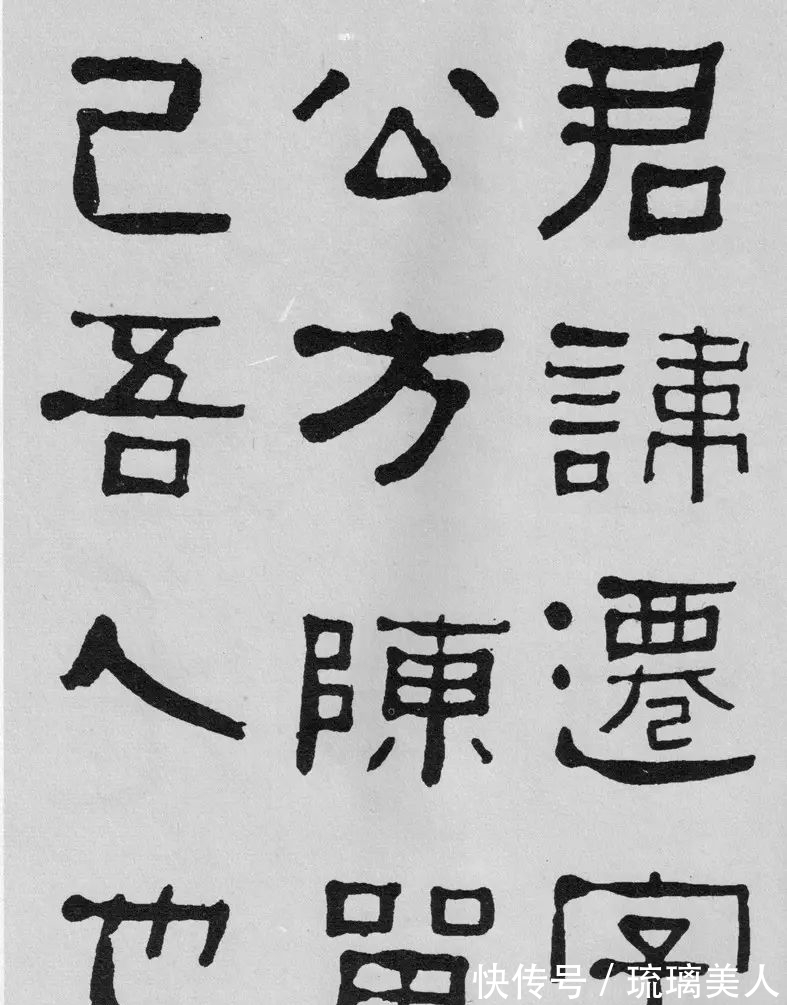 君諱遷字
公方陳留
己吾人也
快传号/琉璃美人